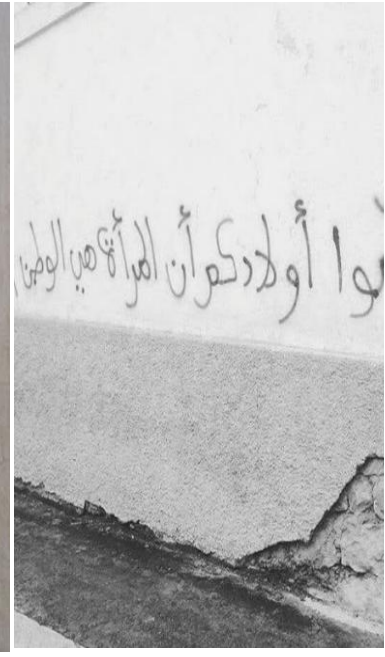 أولادكم أن المرأة هي الوطن